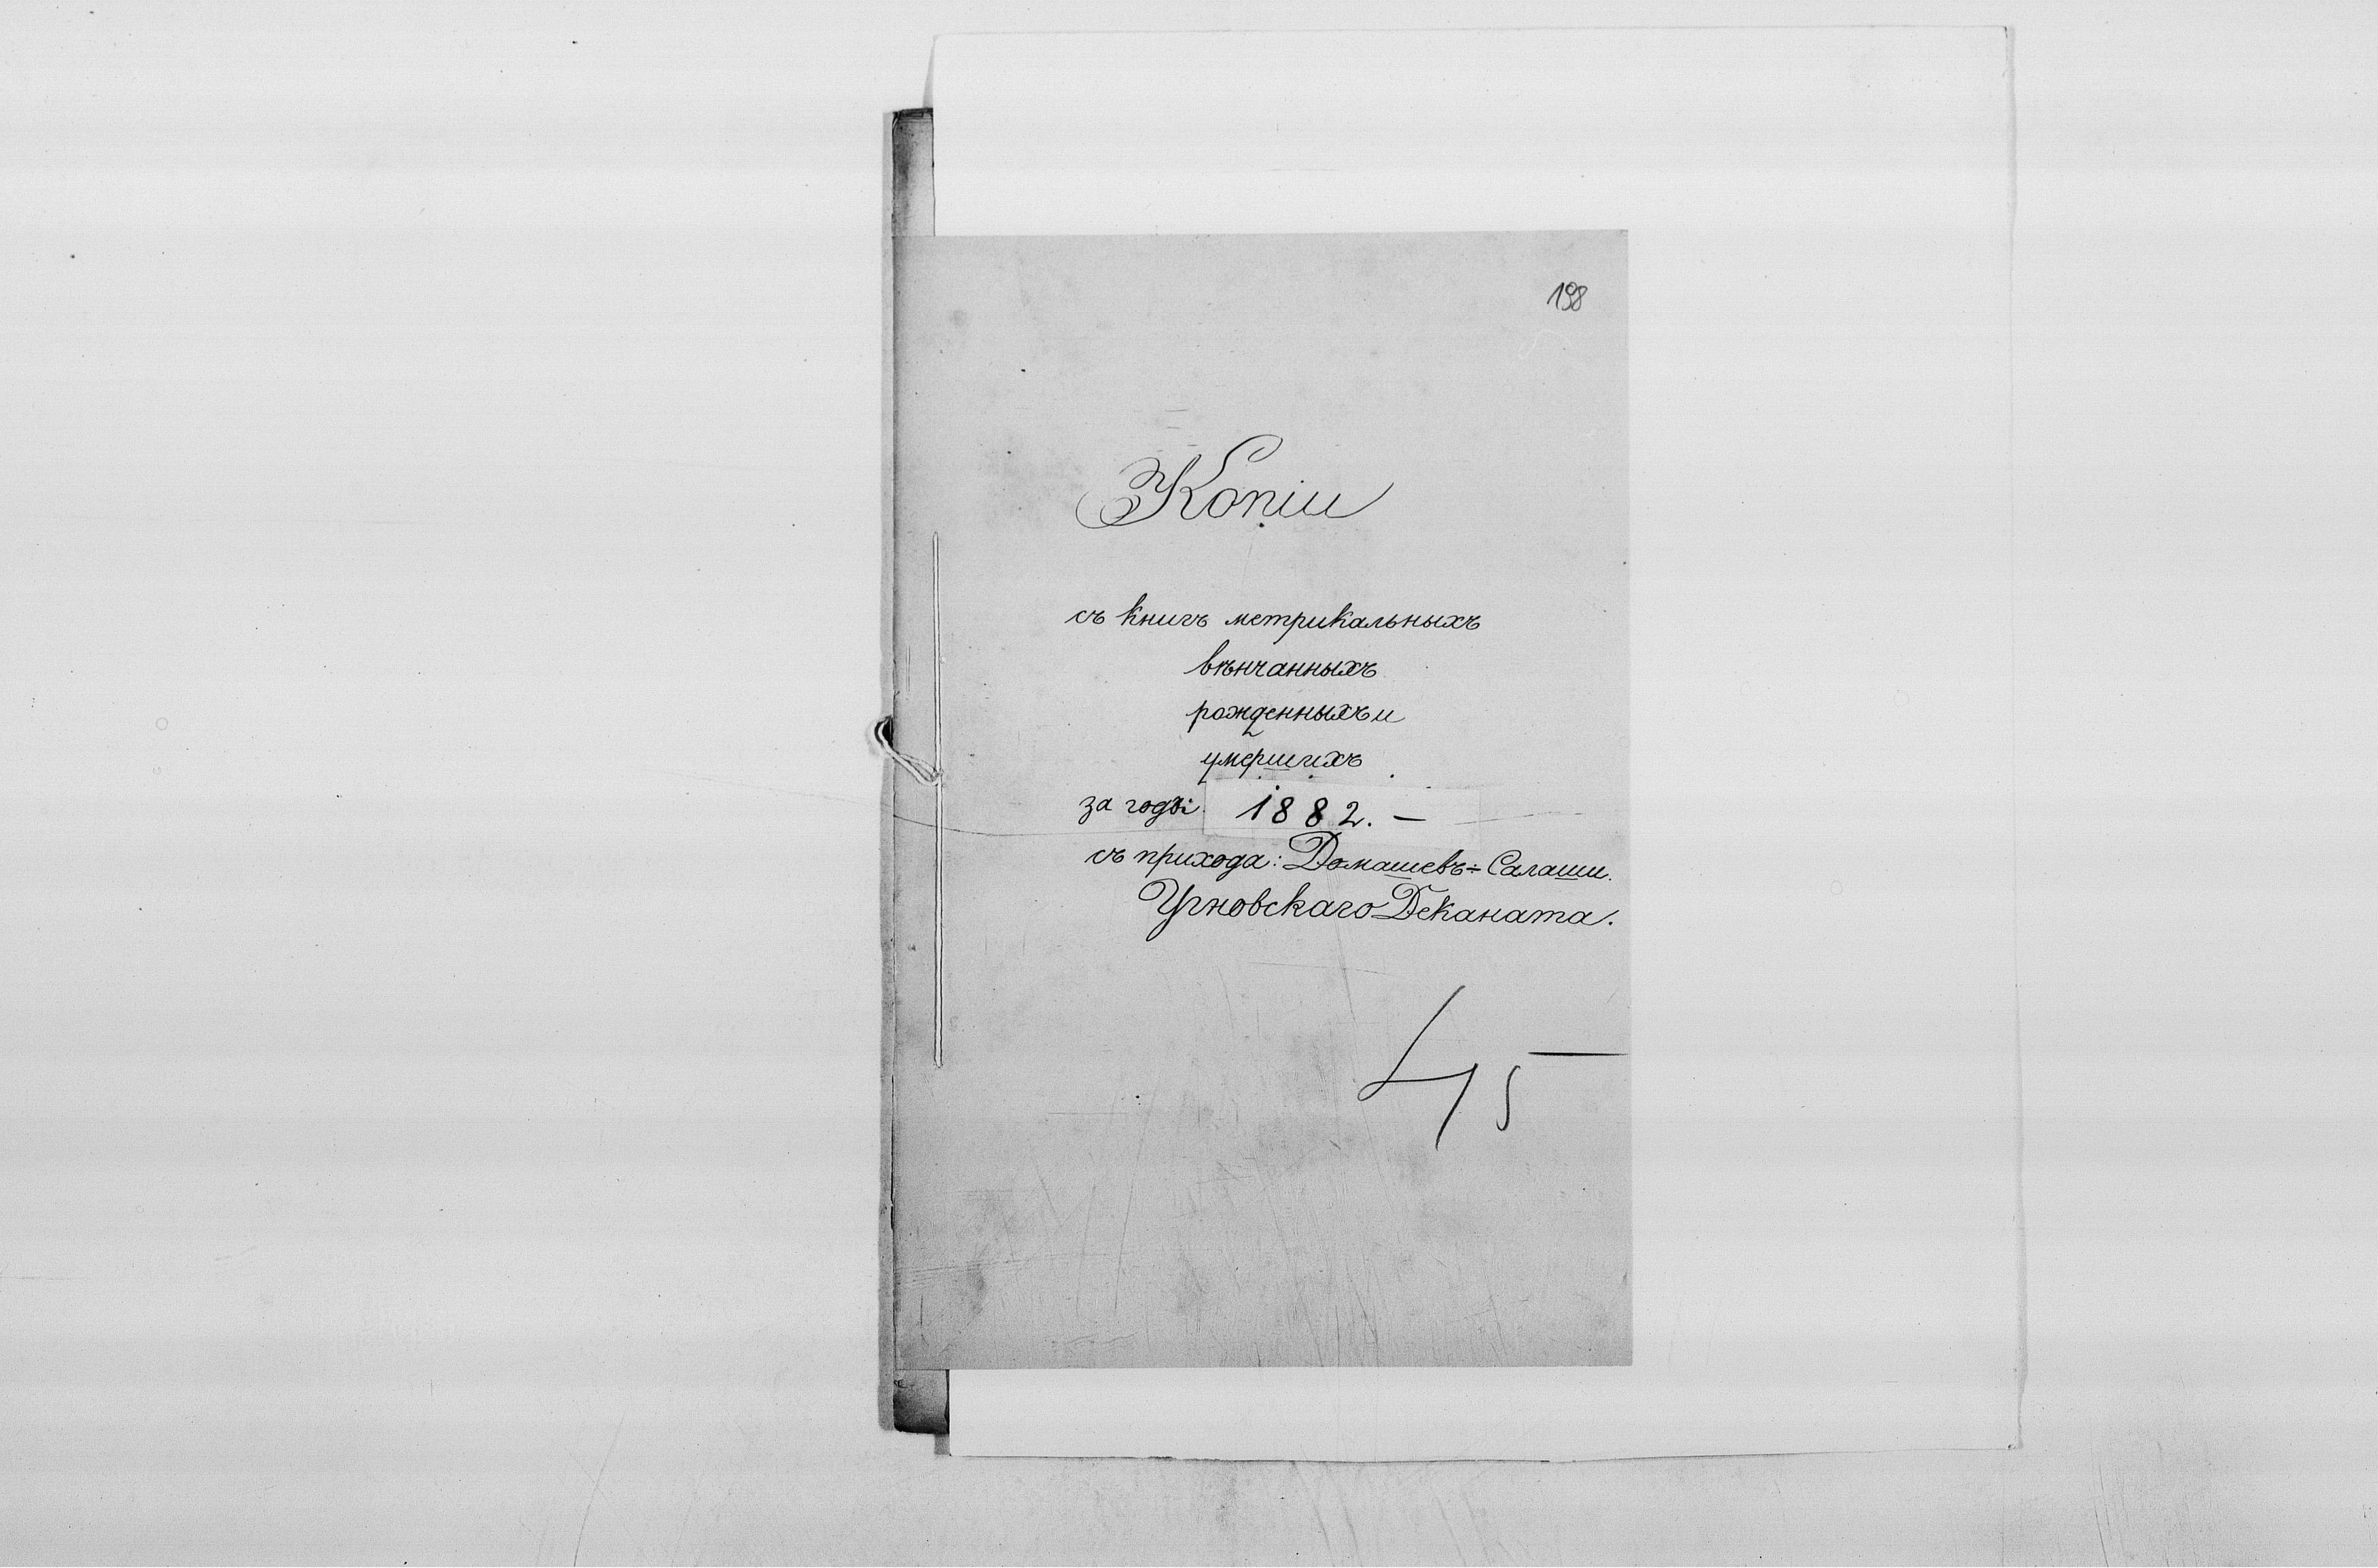 198
Копіи
съ книгъ метрикальныхъ
вѣнчанныхъ
рожденныхъ и
умершихъ
за годъ: 1882. —
съ прихода: Домашевъ-Салаши.
Угновскаго Деканата.
45